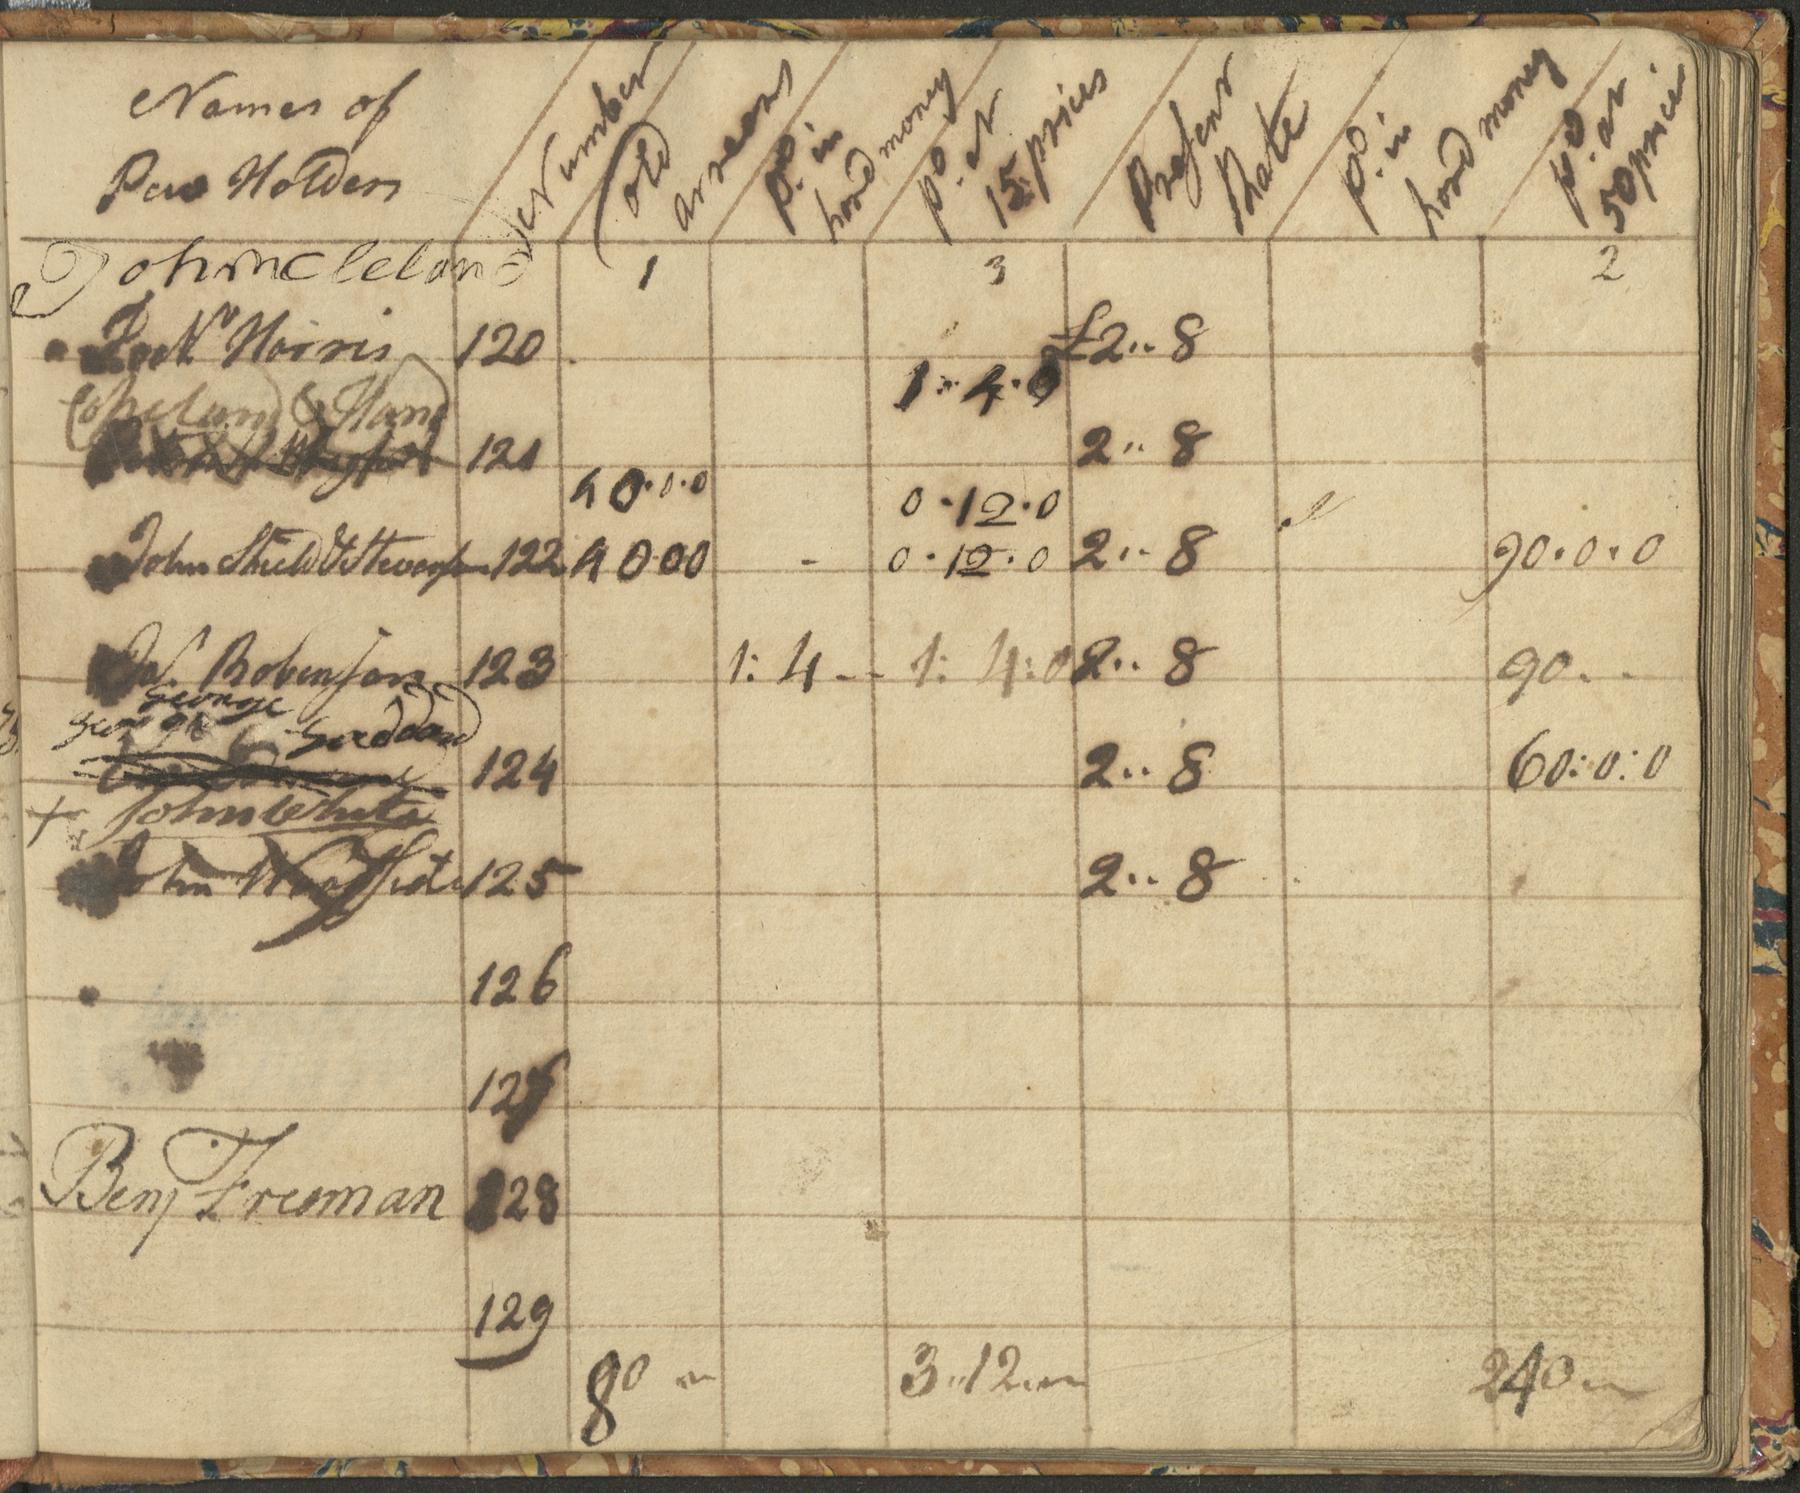 Names of
Pew Holders
Number
Old arrears
pd. in hard money
pd. at 15 prices
Present Rate
pd. in hard money
pd. at 50 prices
John McCleland 1 3 2
Norris 120 £2.. 8
1.. 4.0
Copeland & Hand
121 2.. 8
40.0.0 0.12.0
John Shield & Stevenson 122 40.00 - 0.12.0 2.. 8 90.0.0
W. Robinson 123 1: 4 -- 1: 4:0 2.. 8 90. -
George
George Goddard
124 2.. 8 60:0:0
+ John White
John Woodside 125 2.. 8
126
127
Benj Freeman 128
129
80 3..12 240